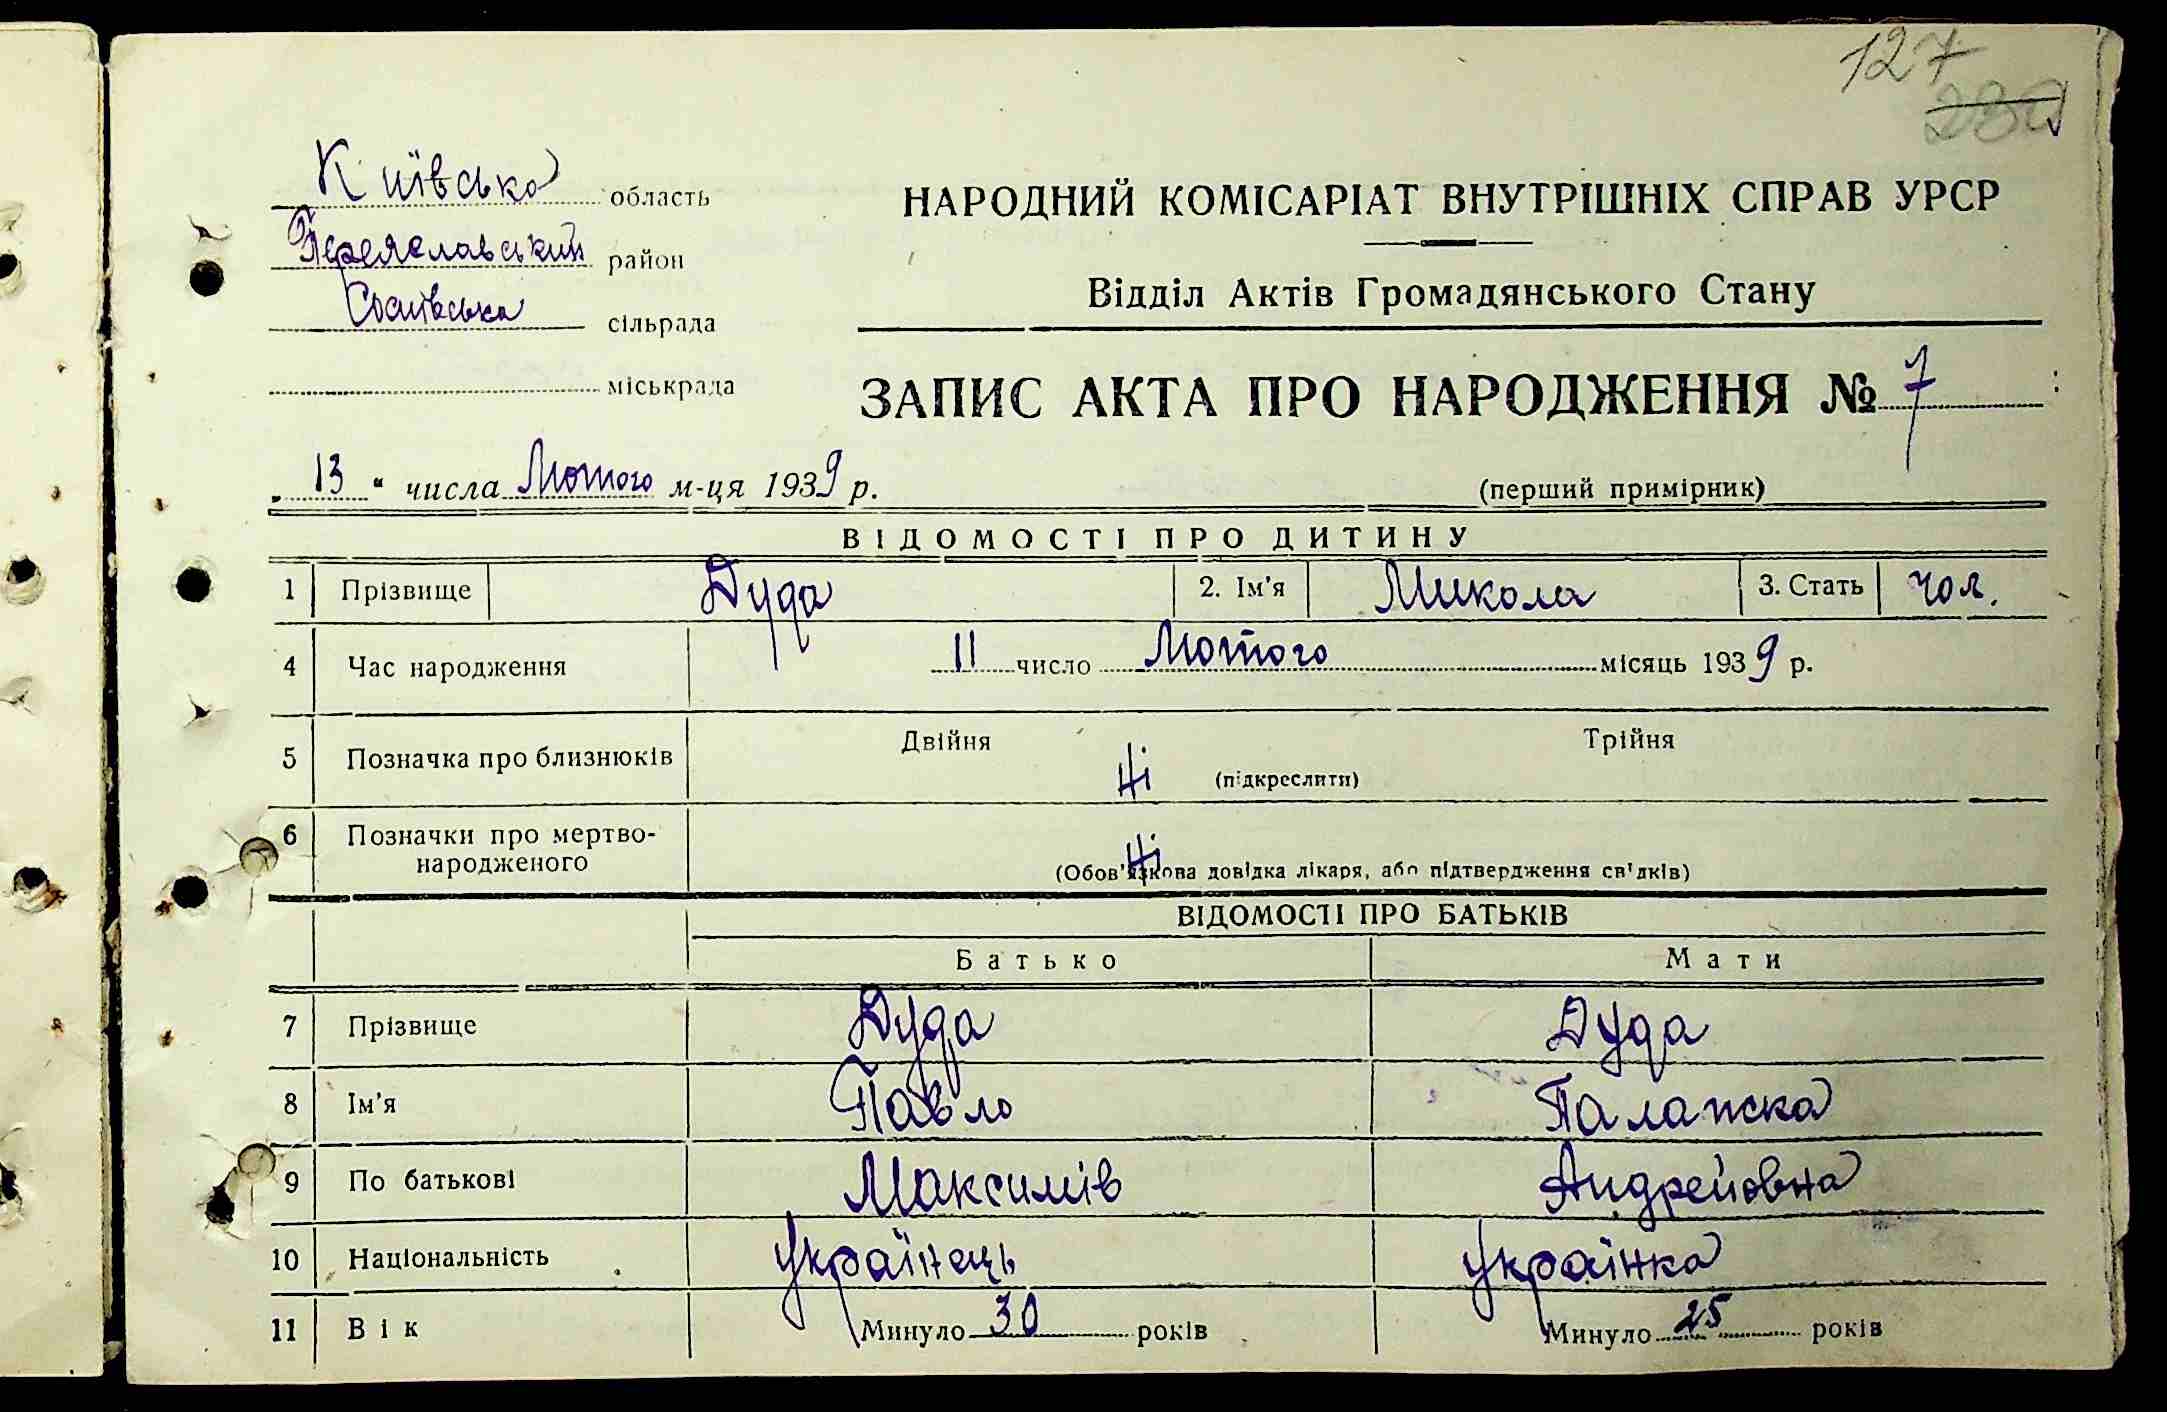 127
Київська область
Переяславський район
Соснівська сільрада
міськрада
НАРОДНИЙ КОМІСАРІАТ ВНУТРІШНІХ СПРАВ УРСР
Відділ Актів Громадянського Стану
ЗАПИС АКТА ПРО НАРОДЖЕННЯ № 7
„13“ числа Лютого м-ця 1939 р.
(перший примірник)
ВІДОМОСТІ ПРО ДИТИНУ
1 Прізвище Дуда 2. Ім'я Микола 3. Стать чол.
4 Час народження 11 число Лютого місяць 1939 р.
5 Позначка про близнюків Двійня Ні (підкреслити) Трійня
6 Позначки про мертво-
народженого Ні
(Обов'язкова довідка лікаря, або підтвердження св'дків)
ВІДОМОСТІ ПРО БАТЬКІВ
Батько Мати
7 Прізвище Дуда Дуда
8 Ім'я Павло Палажка
9 По батькові Максимів Андрейовна
10 Національність Українець Українка
11 Вік Минуло 30 років Минуло 25 років